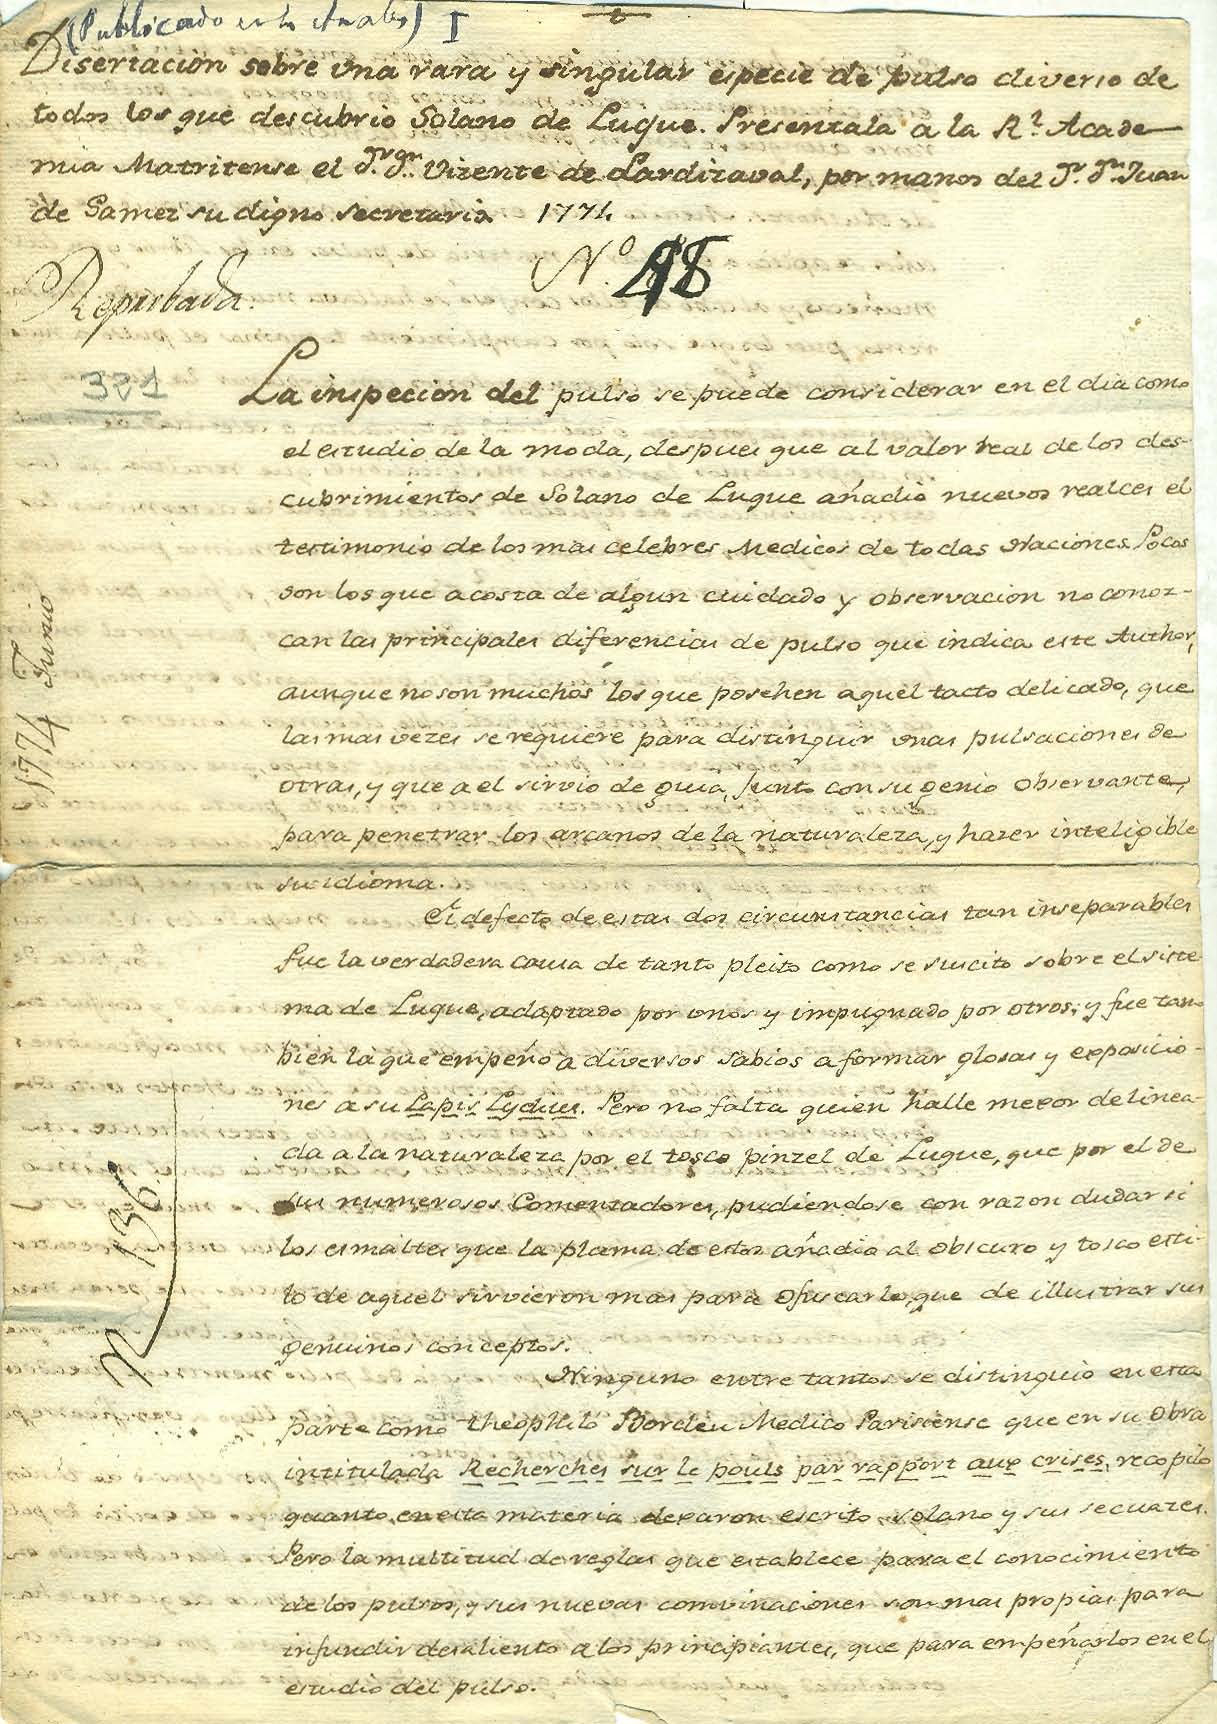 (Publicado en los Anales) I
Disertacion sobre vna rara y singular especie de pulso diverso de
todos los que descubrio Solano de Luque. Presentala a la Rl. Acade-
mia Matritense el Sr. Dn. Vizente de Lardizaval, por manos del Sr. Dn. Juan
de Gamez su digno secretario 1774
Nº 48
Reprobada.
321
La inspecion del pulso se puede considerar en el dia como
el estudio de la moda, despues que al valor real de los des-
cubrimientos de Solano de Luque añadió nuevos realces el
testimonio de los mas celebres Medicos de todas Naciones. Pocos
son los que a costa de algun cuidado y observacion no conoz-
can las principales diferencias de pulso que indica este Author,
aunque no son muchos los que posehen aquel tacto delicado, que
las mas vezes se requiere para distinguir vnas pulsaciones de
otras, y que a el sirvio de guia, junto con su genio observante,
para penetrar los arcanos de la naturaleza, y hazer inteligible
su idioma.
1774 Junio
El defecto de estas dos circunstancias tan inseparables
fue la verdadera causa de tanto pleito como se suscito sobre el siste-
ma de Luque, adaptado por vnos y impugnado por otros; y fue tam
bien la que empeñó a diversos sabios a formar glosas y exposicio-
nes a su Lapis Lydius. Pero no falta quien halle mexor delinea-
da a la naturaleza por el tosco pinzel de Luque, que por el de
sus numerosos Comentadores, pudiendose con razon dudar si
los esmaltes que la pluma de estos añadia al obscuro y tosco esti-
lo de aquel sirvieron mas para ofuscarlo, que de illustrar sus
genuinos conceptos.
136
Ninguno entre tantos se distinguió en esta
parte como Theophilo Bordeu Medico Parisiense que en su obra
intitulada Recherches sur le pouls par rapport aux crises, recopilo
quanto en esta materia dexaron escrito Solano y sus secuazes.
Pero la multitud de reglas que establece para el conocimiento
de los pulsos, y sus nuevas convinaciones son mas propias para
infundir desaliento a los principiantes, que para empeñarlos en el
estudio del pulso.